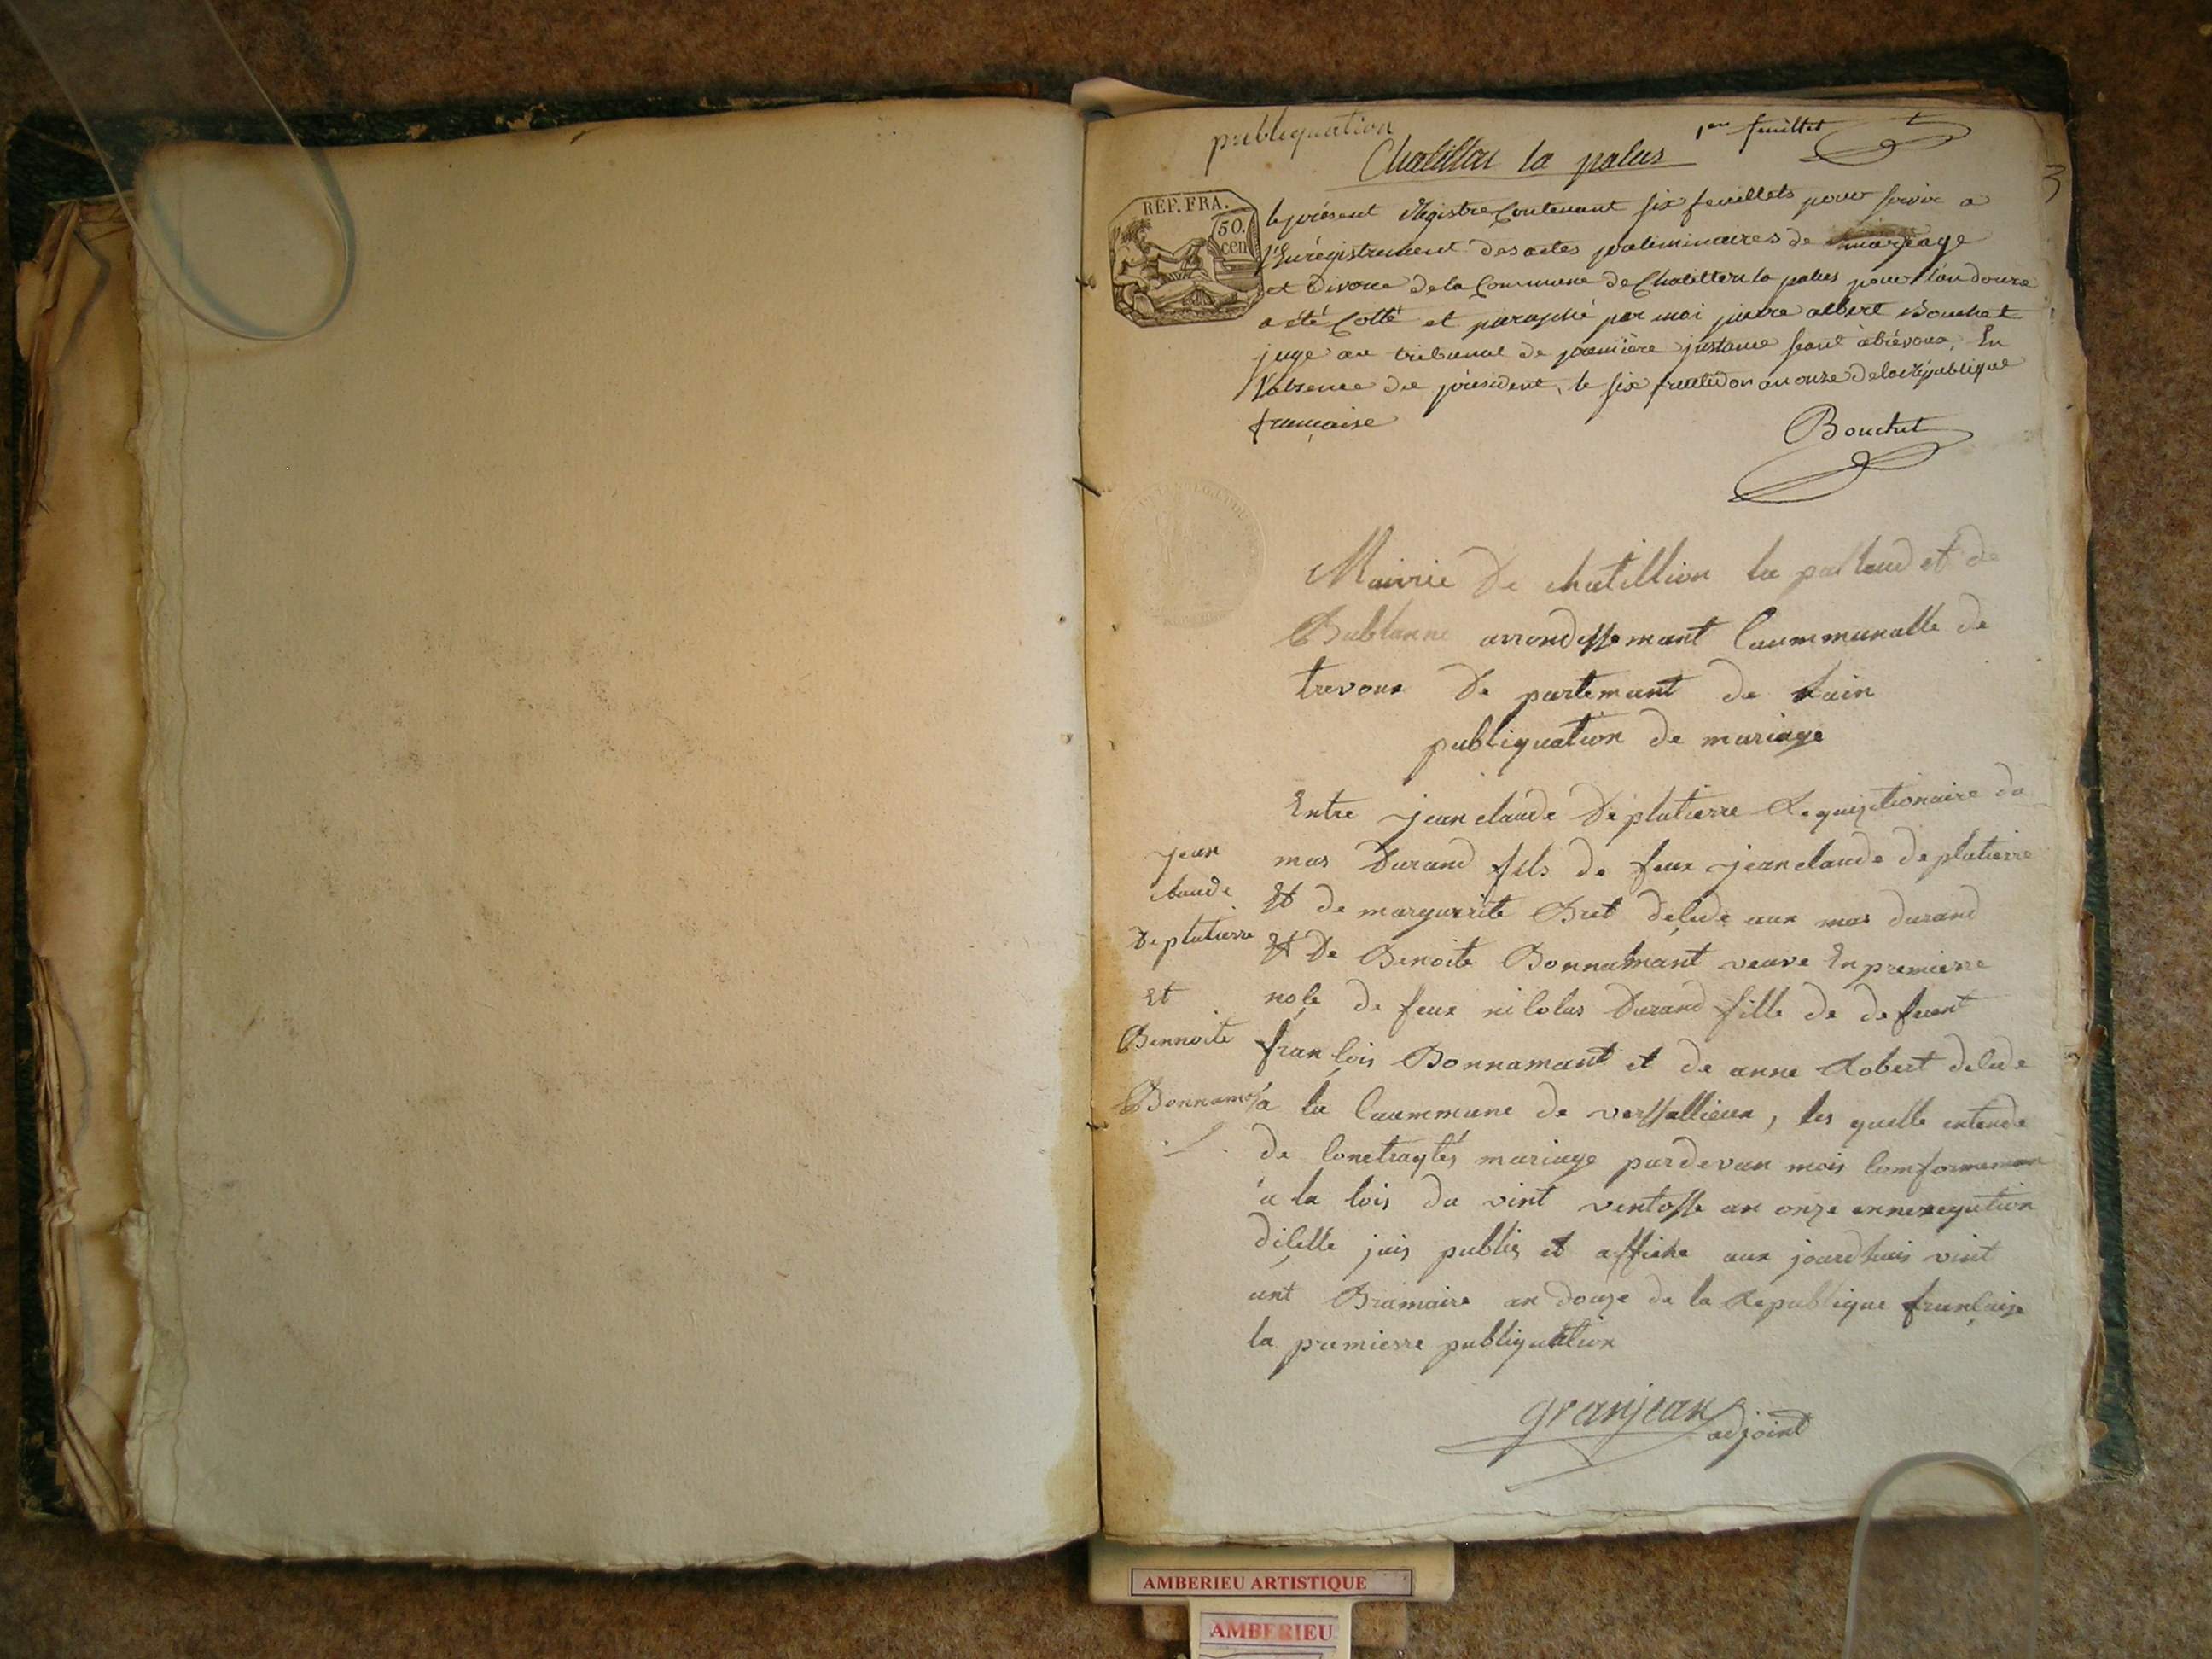 publiquation
Chatillon la palus
1er feuillet
3
REP. FRA.
50.
cen
le présent Régistre Contenant six feuillets pour servir a
l'Enrégistrement des actes préliminaires de mariage
et Divorce de la Commune de Chatillon la palus pour l'an douze
a été Cotté et paraphé par moi pierre albert Bouchet
juge au tribunal de première jnstance séant à trévoux, En
l'absence du président, le six fructidor an onze de la république
française
Bouchet
Mairie De chatillion la pallud et de
Bublanne arrondissemant Caummunalle de
trevoux De partemant de lain
publiquation de mariage
Entre jean claude Déplatierre Requizitionaire du
mas Durand fils de feux jean claude deplatierre
Et de margueritte Bret déçede aux mas durand
Et De Benoite Bonnamant veuve En premierre
noçe de feux nicolas Durand fille de defeunt
françois Bonnamant et de anne Robert deçede
à la Caummune de verssallieux, les quelle entende
de Conctraqtés mariage pardevan mois Comformeman
a la lois du vint ventosse an onze
diçelle jais publiez et affiché aux jourdhuis vint
unt Bramaire an douze de la Republique françaize
la premierre publiquation
granjean
adjoint
jean
claude
Deplatierre
Et
Bennoite
Bonnamo
AMBERIEU ARTISTIQUE
AMBERIEU